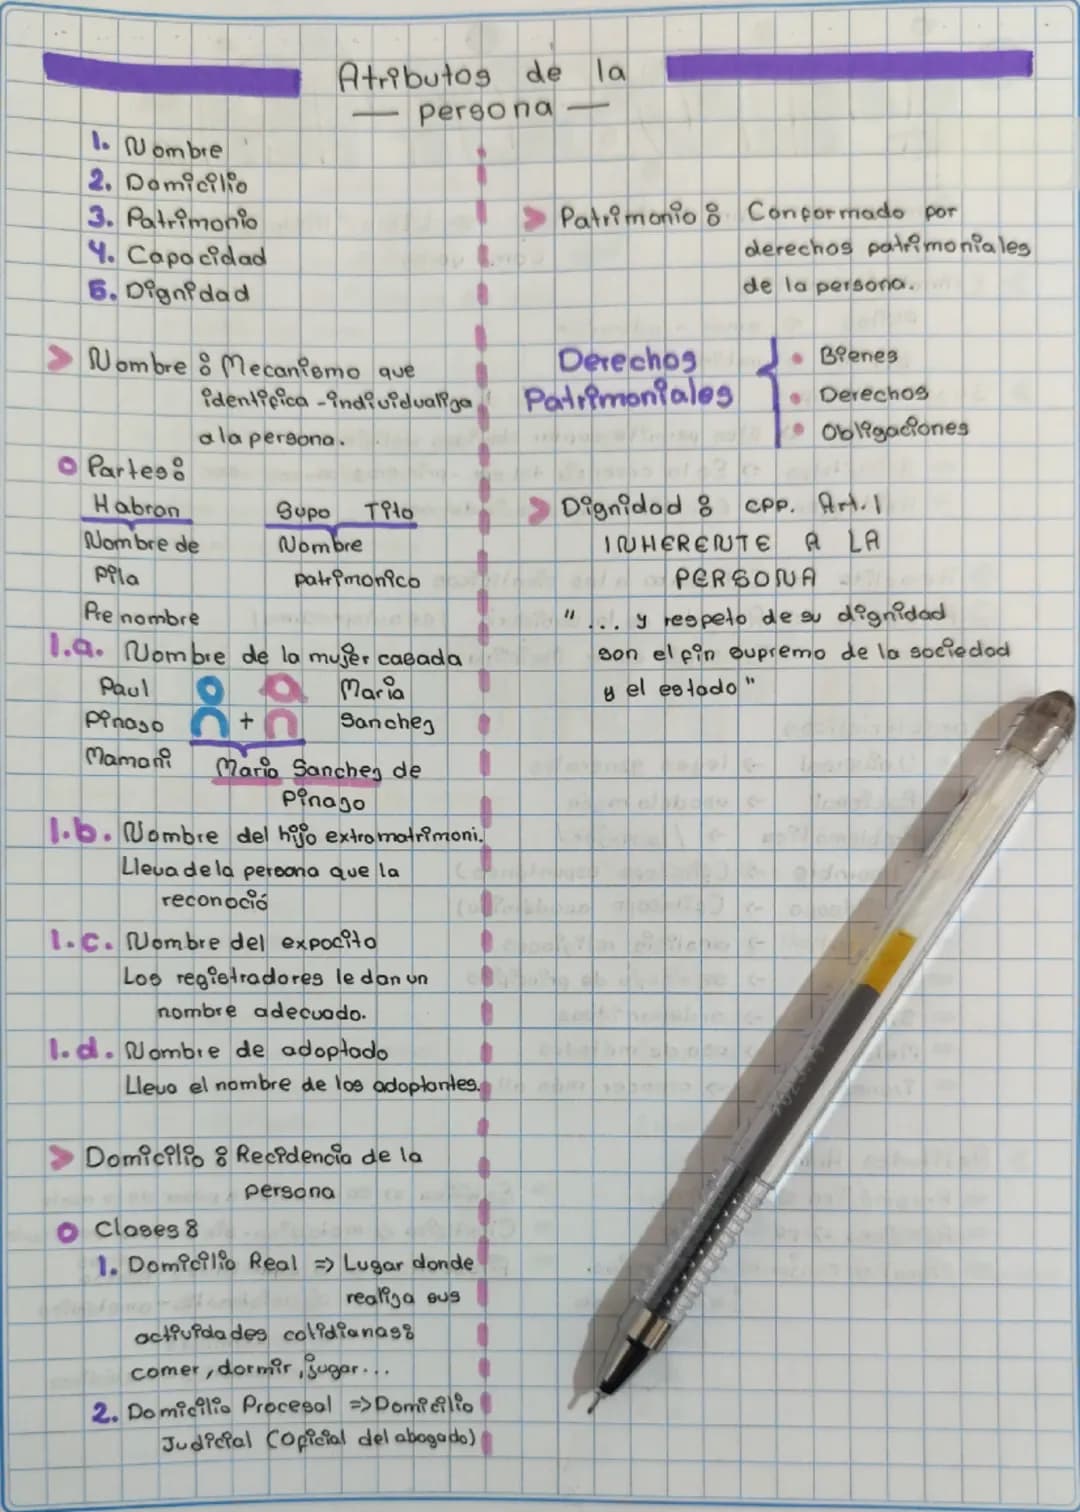 Atributos de la
— persona —
1. Nombre
2. Domicilio
3. Patrimonio
4. Capacidad
5. Dignidad
> Nombre : Mecanismo que
identifica - individualiza
a la persona.
Partes:
Habran Supo Tito
Nombre de Nombre
Pila patrimonico
Pre nombre
1.a. Nombre de la mujer casada
Paul Maria
Pinaso + Sanchez
Mamani Maria Sanchez de
Pinazo
1.b. Nombre del hijo extramatrimoni.
Lleva de la persona que la
reconoció
1.c. Nombre del expocito
Los registradores le dan un
nombre adecuado.
1.d. Nombre de adoptado
Lleva el nombre de los adoptantes.
> Domicilio : Recidencia de la
persona
Clases:
1. Domicilio Real => Lugar donde
realiza sus
actividades cotidianas:
comer, dormir, jugar...
2. Domicilio Procesal => Domicilio
Judicial (Oficial del abogado)
> Patrimonio : Conformado por
derechos patrimoniales
de la persona.
Derechos
Patrimoniales
• Bienes
• Derechos
• Obligaciones
> Dignidad : CPP. Art. 1
INHERENTE A LA
PERSONA
"... y respeto de su dignidad
son el fin supremo de la sociedad
y el estado"